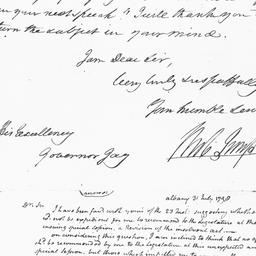 in your next speech & I will thank you
turn the subject in your mind.
I am Dear Sir,
very truly & respectfully
Your humble Ser
His Excellency
Governor Jay
(answer)
Dr. Sir albany 31 July 1798
I have been fav'd with yours of the 23 Inst. suggesting whether
it not be expedient for me to recommend to the Legislature at the
ensuing special Session, a Revision of the insolvent act
on considering this Question, I am inclined to think that no o
to be recommended by me to the Legislature at this unexpected and
special Session, but those which impelled me to